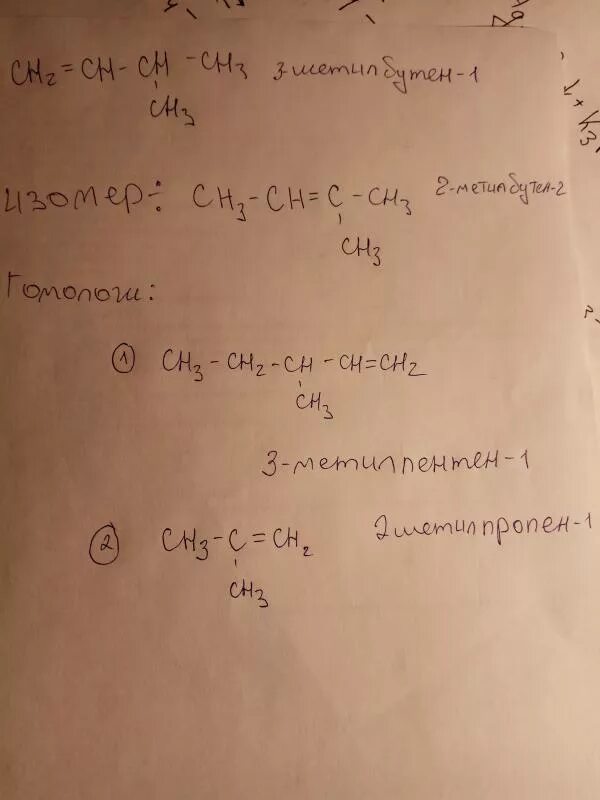 CH₂=CH-CH-CH₃ 3-метилбутен-1
CH₃
изомер: CH₃-CH=C-CH₃ 2-метилбутен-2
CH₃
Гомологи:
① CH₃-CH₂-CH-CH=CH₂
CH₃
3-метилпентен-1
② CH₃-C=CH₂ 2метилпропен-1
CH₃